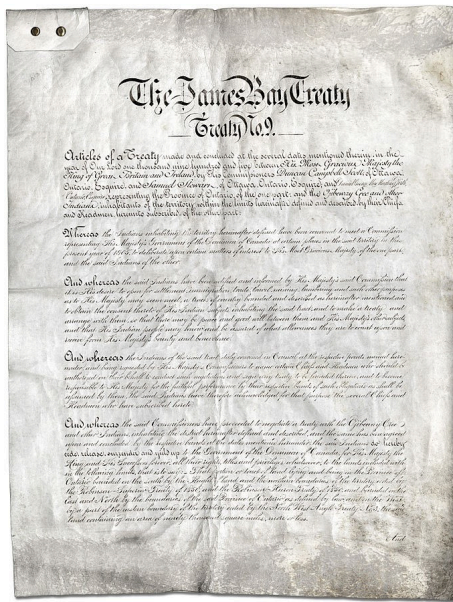 The James Bay Treaty
Treaty No. 9.
Articles of a Treaty made and concluded at the several dates mentioned therein, in the
year of Our Lord one thousand and nine hundred and five, between His Most Gracious Majesty the
King of Great Britain and Ireland, by His Commissioners, Duncan Campbell Scott, of Ottawa,
Ontario, Esquire, and Samuel Stewart, of Ottawa, Ontario, Esquire; and
representing the Province of Ontario, of the one part; and the Ojibeway, Cree and other
Indians, inhabitants of the territory within the limits hereinafter defined and described, by their Chiefs
and Headmen hereunto subscribed, of the other part:
Whereas the Indians inhabiting the territory hereinafter defined have been convened to meet a Commission
representing His Majesty's Government of the Dominion of Canada at certain places in the said territory in this
present year of 1905, to deliberate upon certain matters of interest to His Most Gracious Majesty, of the one part,
and the said Indians of the other.
And whereas the said Indians have been notified and informed by His Majesty's Commission that
it is His desire to open for settlement, immigration, trade, travel, mining, lumbering, and such other purposes
as to His Majesty may seem meet, a tract of country, bounded and described as hereinafter mentioned, and
to obtain the consent thereto of His Indian subjects inhabiting the said tract, and to make a treaty and
arrange with them, so that there may be peace and good will between them and His Majesty's other subjects,
and that His Indian people may know and be assured of what allowances they are to count upon and
receive from His Majesty's bounty and benevolence.
And whereas the Indians of the said tract, duly convened in Council at the respective points named here-
under, and being requested by His Majesty's Commissioners to name certain Chiefs and Headmen who should be
authorized on their behalf to conduct such negotiations and sign any treaty to be founded thereon, and to become
responsible to His Majesty for the faithful performance by their respective bands of such obligations as shall be
assumed by them, the said Indians have therefore acknowledged for that purpose the several Chiefs and
Headmen who have subscribed hereto.
And whereas the said Commissioners have proceeded to negotiate a treaty with the Ojibeway, Cree
and other Indians, inhabiting the district hereinafter defined and described, and the same has been agreed
upon and concluded by the respective bands at the dates mentioned hereunder, the said Indians do hereby
cede, release, surrender and yield up to the Government of the Dominion of Canada, for His Majesty the
King and His Successors for ever, all their rights, titles and privileges whatsoever, to the lands included with-
in the following limits, that is to say:
land containing an area of ninety thousand square miles, more or less.
And